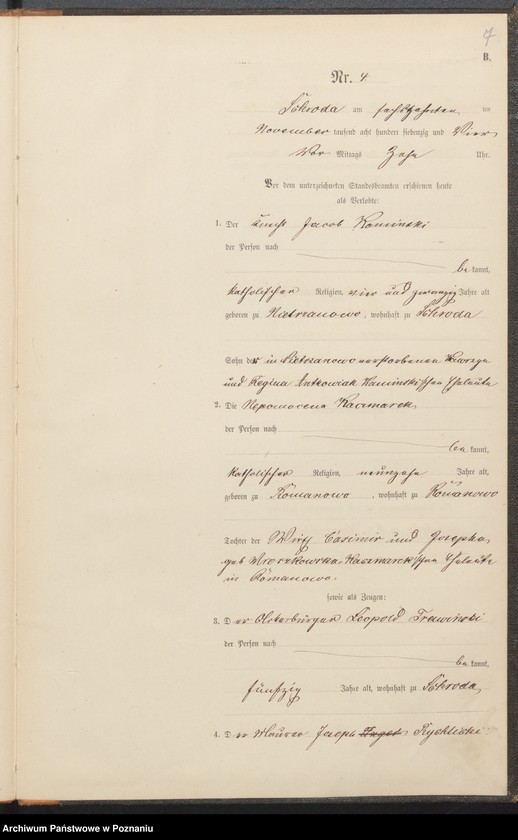 7
B.
Nr. 4
Schroda am sechszehnten
November tausend acht hundert siebenzig und Vier
Vor Mittags Zehn Uhr.
Vor dem unterzeichneten Standesbeamten erschienen heute
als Verlobte:
1. Der Knecht Jacob Kaminski
der Person nach
be kannt,
katholischer Religion, vier und zwanzig Jahre alt
geboren zu Pietrzanowo, wohnhaft zu Schroda
Sohn der in Pietrzanowo verstorbenen
und Regina Antkowiak Kaminskischen Eheleute
2. Die Nepomocena Kaczmarek
der Person nach
be kannt,
katholischer Religion, neunzehn Jahre alt,
geboren zu Romanowo, wohnhaft zu Romanowo
Tochter der Wirth Casimir und Josepha
geb Mroczkowska Kaczmarekschen Eheleute
in Romanowo.
sowie als Zeugen:
3. Der Ackerbürger Leopold Trawinski
der Person nach
be kannt,
fünfzig Jahre alt, wohnhaft zu Schroda
4. Der Maurer Joseph Rychlicki
Archiwum Państwowe w Poznaniu